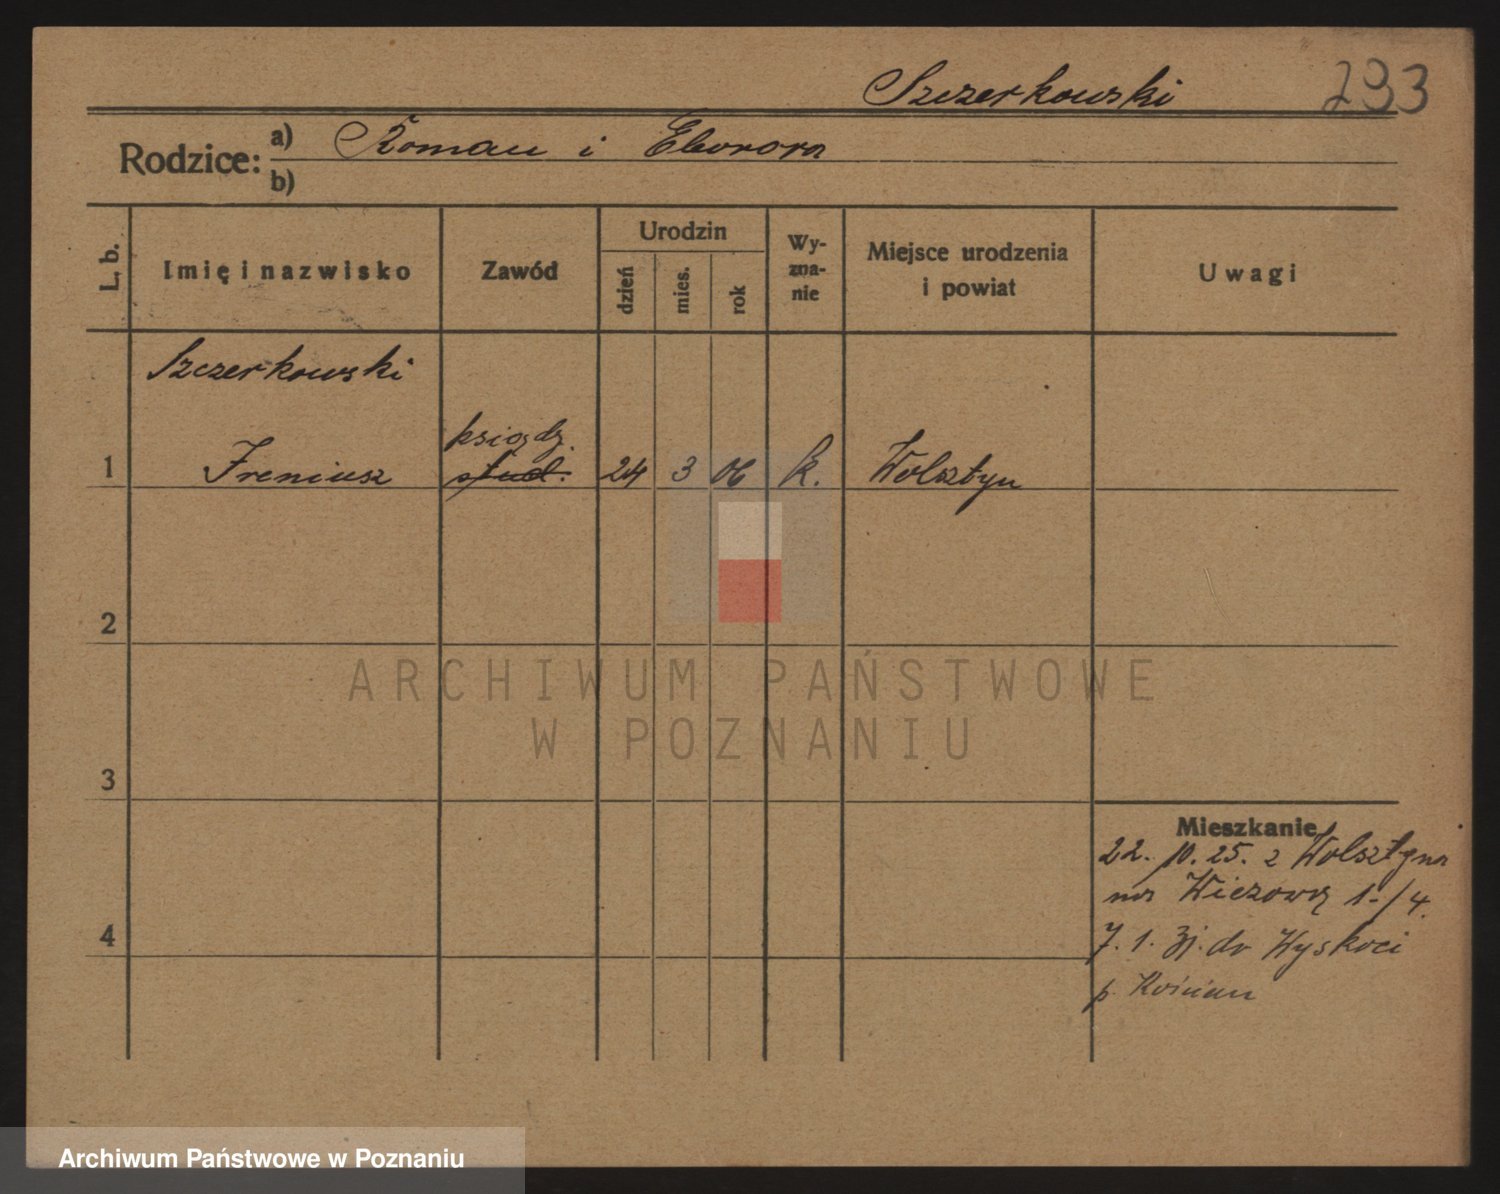 Szczerkowski 293
Rodzice: a) Roman i
b)
L. b.
Imię i nazwisko
Zawód
Urodzin
dzień
mies.
rok
Wy-
zna-
nie
Miejsce urodzenia
i powiat
Uwagi
Szczerkowski
ksiądz.
1 Ireniusz stud. 24 3 06 k. Wolsztyn
2
3
4
Mieszkanie
22. 10. 25. z Wolsztyna
na Wieżową 1-/4.
7. 1. 31. do Wyskoci
p. Kościan
ARCHIWUM PAŃSTWOWE
W POZNANIU
Archiwum Państwowe w Poznaniu